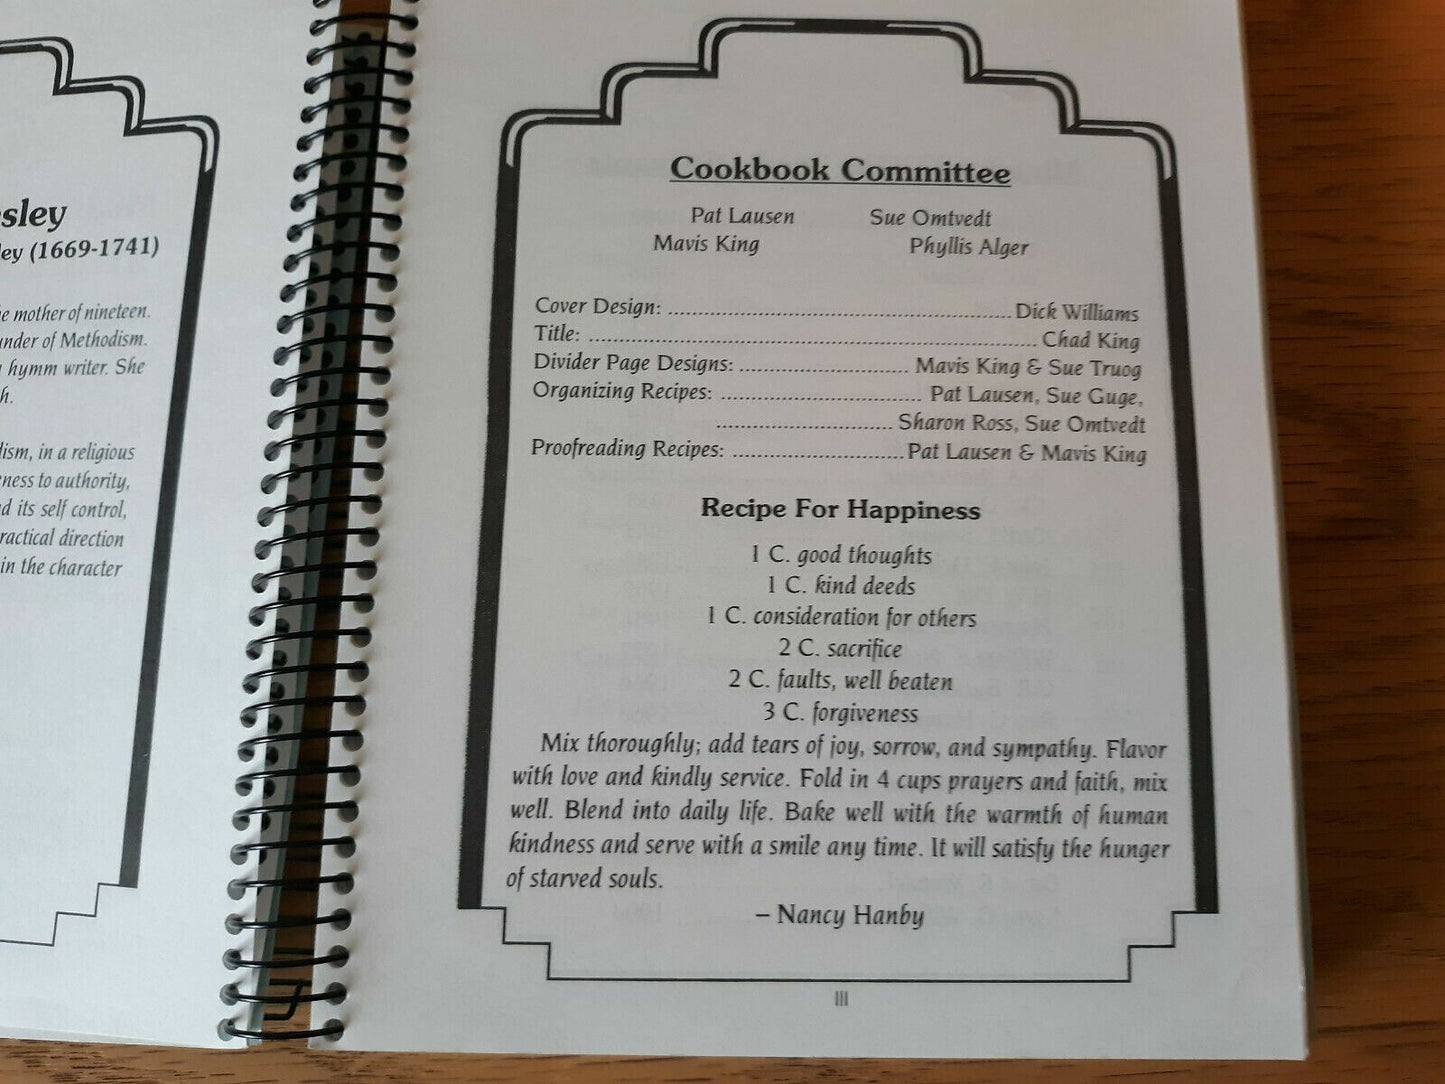 sley
ley (1669-1741)
e mother of nineteen.
under of Methodism.
hymm writer. She
h.
dism, in a religious
ness to authority,
d its self control,
ractical direction
in the character
Cookbook Committee
Pat Lausen Sue Omtvedt
Mavis King Phyllis Alger
Cover Design: .................................................... Dick Williams
Title: .................................................................... Chad King
Divider Page Designs: .......................... Mavis King & Sue Truog
Organizing Recipes: .............................. Pat Lausen, Sue Guge,
........................... Sharon Ross, Sue Omtvedt
Proofreading Recipes: .......................... Pat Lausen & Mavis King
Recipe For Happiness
1 C. good thoughts
1 C. kind deeds
1 C. consideration for others
2 C. sacrifice
2 C. faults, well beaten
3 C. forgiveness
Mix thoroughly; add tears of joy, sorrow, and sympathy. Flavor
with love and kindly service. Fold in 4 cups prayers and faith, mix
well. Blend into daily life. Bake well with the warmth of human
kindness and serve with a smile any time. It will satisfy the hunger
of starved souls.
– Nancy Hanby
III